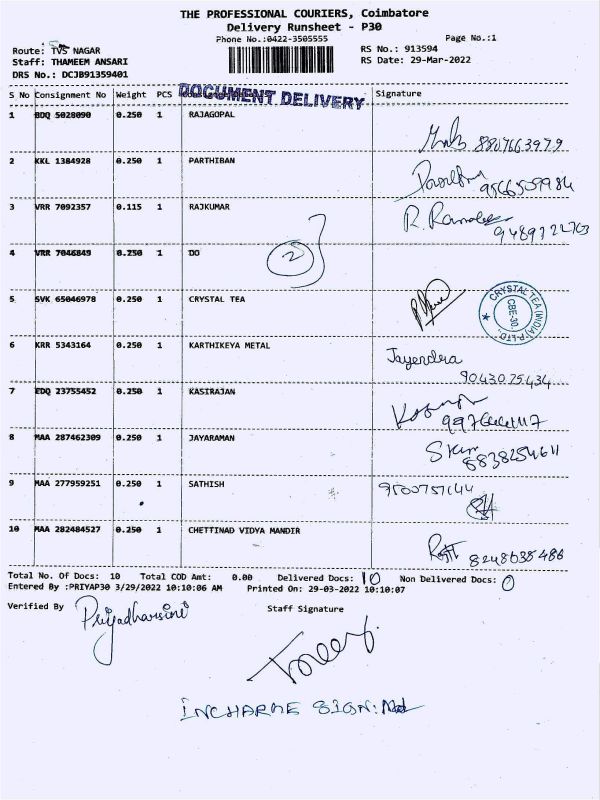 THE PROFESSIONAL COURIERS, Coimbatore
Delivery Runsheet - P30
Phone No.:0422-3505555
Page No.:1
Route: TVS NAGAR
RS No.: 913594
Staff: THAMEEM ANSARI
RS Date: 29-Mar-2022
DRS No.: DCJB91359401
DOCUMENT DELIVERY
S No Consignment No Weight PCS Signature
1 BDQ 5028090 0.250 1 RAJAGOPAL
8807663979
2 KKL 1384928 0.250 1 PARTHIBAN
9566509984
3 VRR 7092357 0.115 1 RAJKUMAR
9489722763
4 VRR 7046849 0.250 1 DO
2
5 SVK 65046978 0.250 1 CRYSTAL TEA
CRYSTAL TEA (INDIA) P-LTD. CBE-30.
6 KRR 5343164 0.250 1 KARTHIKEYA METAL
Jayendra
9043075434
7 EDQ 23755452 0.250 1 KASIRAJAN
8 MAA 287462309 0.250 1 JAYARAMAN
8838254611
9 MAA 277959251 0.250 1 SATHISH
10 MAA 282484527 0.250 1 CHETTINAD VIDYA MANDIR
8248635486
Total No. Of Docs: 10 Total COD Amt: 0.00 Delivered Docs: 10 Non Delivered Docs: 0
Entered By :PRIYAP30 3/29/2022 10:10:06 AM Printed On: 29-03-2022 10:10:07
Verified By Priyadharsini Staff Signature
INCHARGE SIGN: